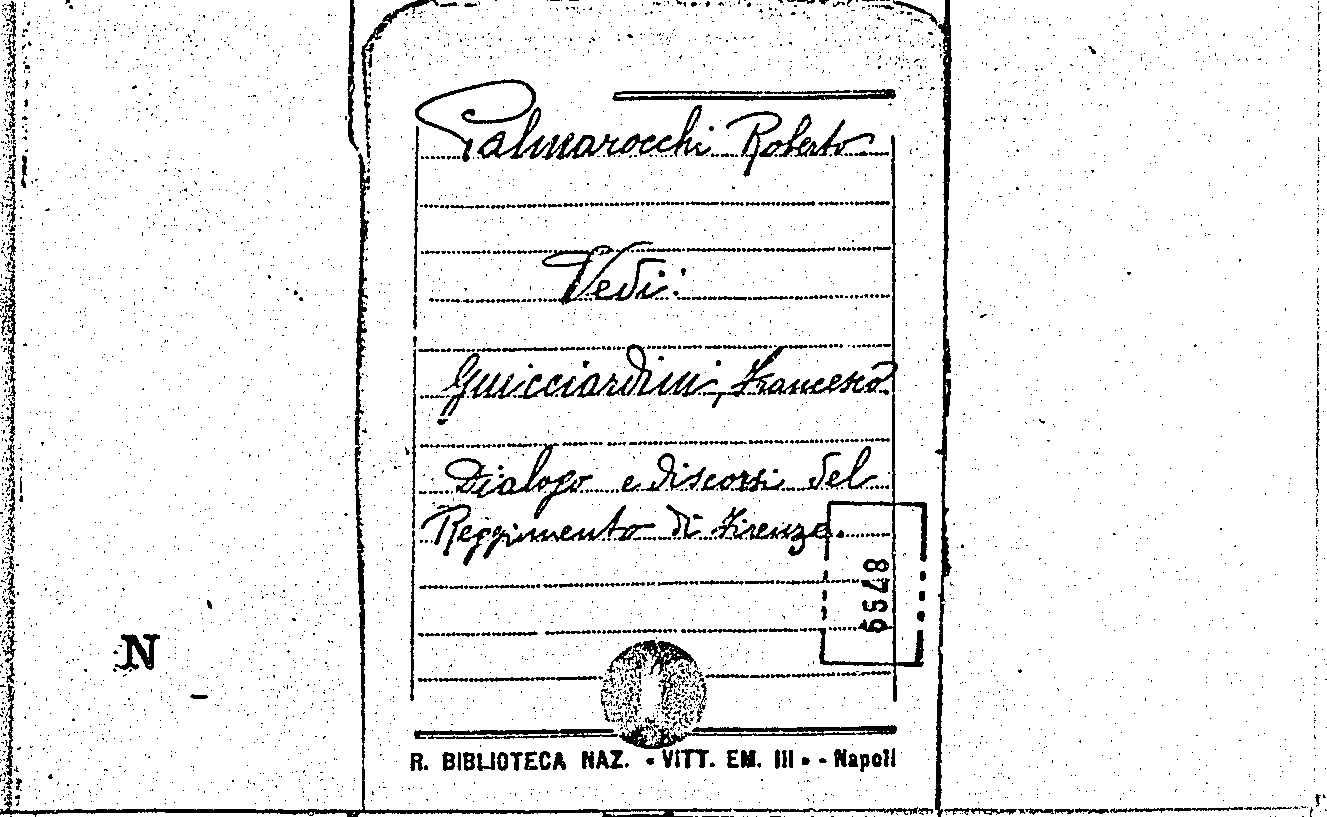 Palmarocchi Roberto
Vedi:
Guicciardini, Francesco
Dialogo e discorsi del
Reggimento di Firenze.
5548
N
R. BIBLIOTECA NAZ. - VITT. EM. III - - Napoli